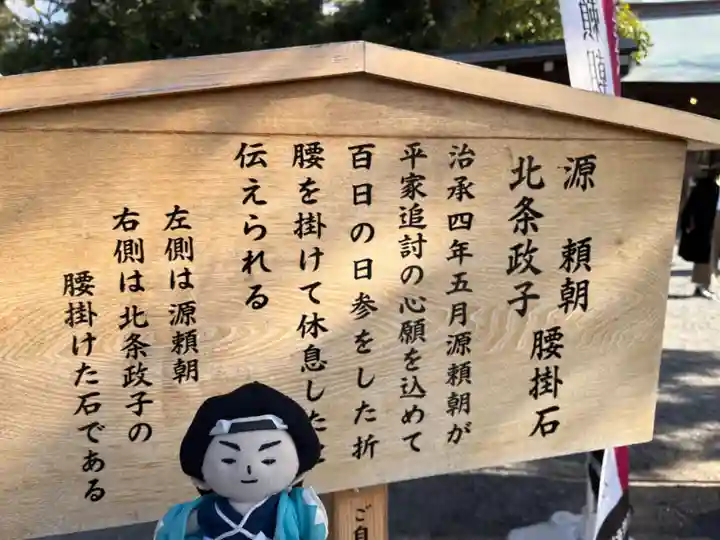 源 頼朝
北条政子 腰掛石
治承四年五月源頼朝が
平家追討の心願を込めて
百日の日参をした折
腰を掛けて休息したと
伝えられる
左側は源頼朝
右側は北条政子の
腰掛けた石である
ご自